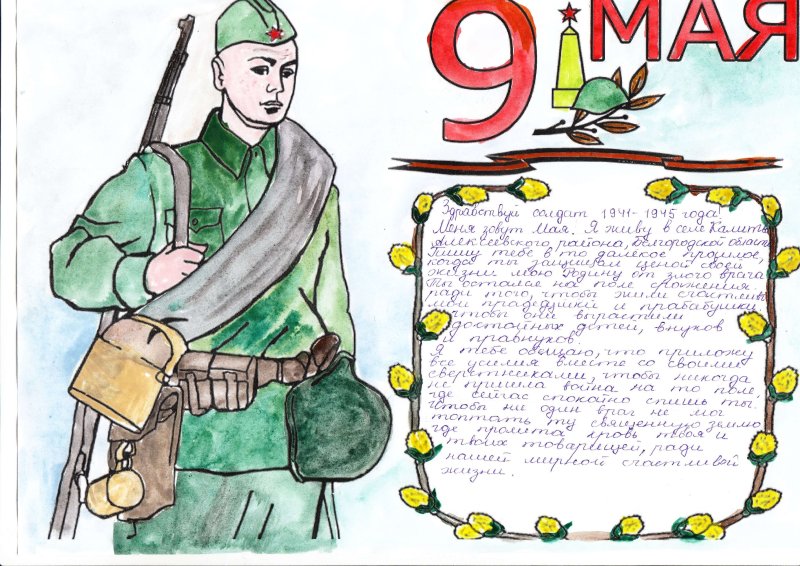 9 МАЯ
Здравствуй солдат 1941-1945 года!
Меня зовут Мая. Я живу в селе Камыты
Алексеевского, района, Белгородской области
Пишу тебе в то далекое прошлое,
когда ты защищал ценой своей
жизни мою Родину от злого врага.
Ты остался на поле сражения
ради того, чтобы жили счастливо
мои прадедушки и прабабушки,
чтобы они взрастили
достойных детей, внуков
и правнуков.
Я тебе обещаю, что приложу
все усилия вместе со своими
сверстниками, чтобы никогда
не пришла война на то поле,
где сейчас спокойно спишь ты.
Чтобы ни один враг не мог
топтать ту священную землю
где пролита кровь твоя и
твоих товарищей, ради
нашей мирной счастливой
жизни.